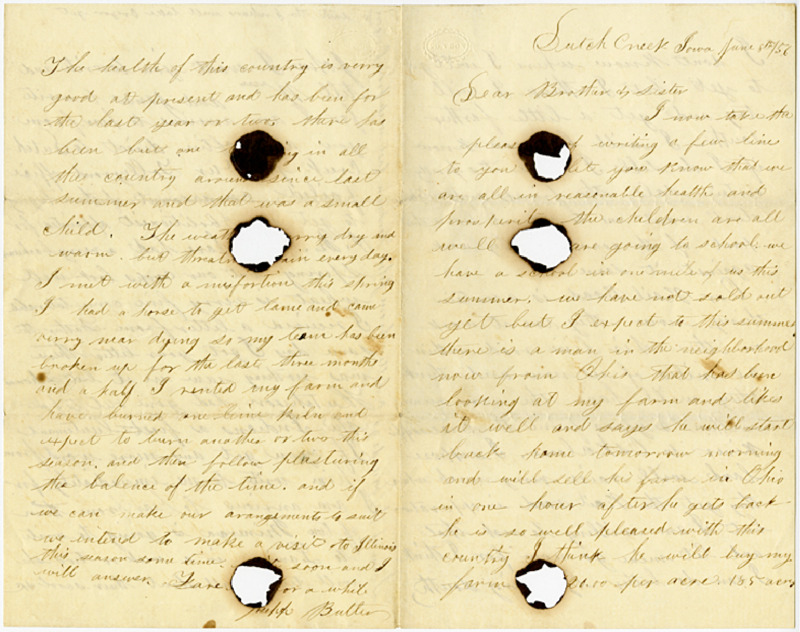 Dutch Creek Iowa June 8th/57
Dear Brother & Sister
I now take the
pleas of writing a few line
to you let you know that we
are all in reasonable health and
prosperity the children are all
well are going to school we
have a school in one mile of us this
summer. we have not sold out
yet but I expect to this summer
there is a man in the neighborhood
now from Ohio that has been
looking at my farm and likes
it well and says he will start
back home tomorrow morning
and will sell his farm in Ohio
in one hour after he gets back
he is so well pleased with this
country I think he will buy my
farm 20.00 per acre 185 acres
The health of this country is verry
good at present and has been for
the last year or two. ther has
been but one ing in all
this country around since last
summer and that was a small
child. The weat verry dry and
warm. but threat rain every day.
I met with a misfortion this spring
I had a horse to get lame and came
verry near dying so my team has been
broken up for the last three months
and a half I rented my farm and
have burned one lime kiln and
expect to burn another or two this
season. and then follow plasturing
the balence of the time. and if
we can make our arangements to suit
we intend to make a visit to Illinois
this season some time. soon and I
will answer. Fare or a while
Butler